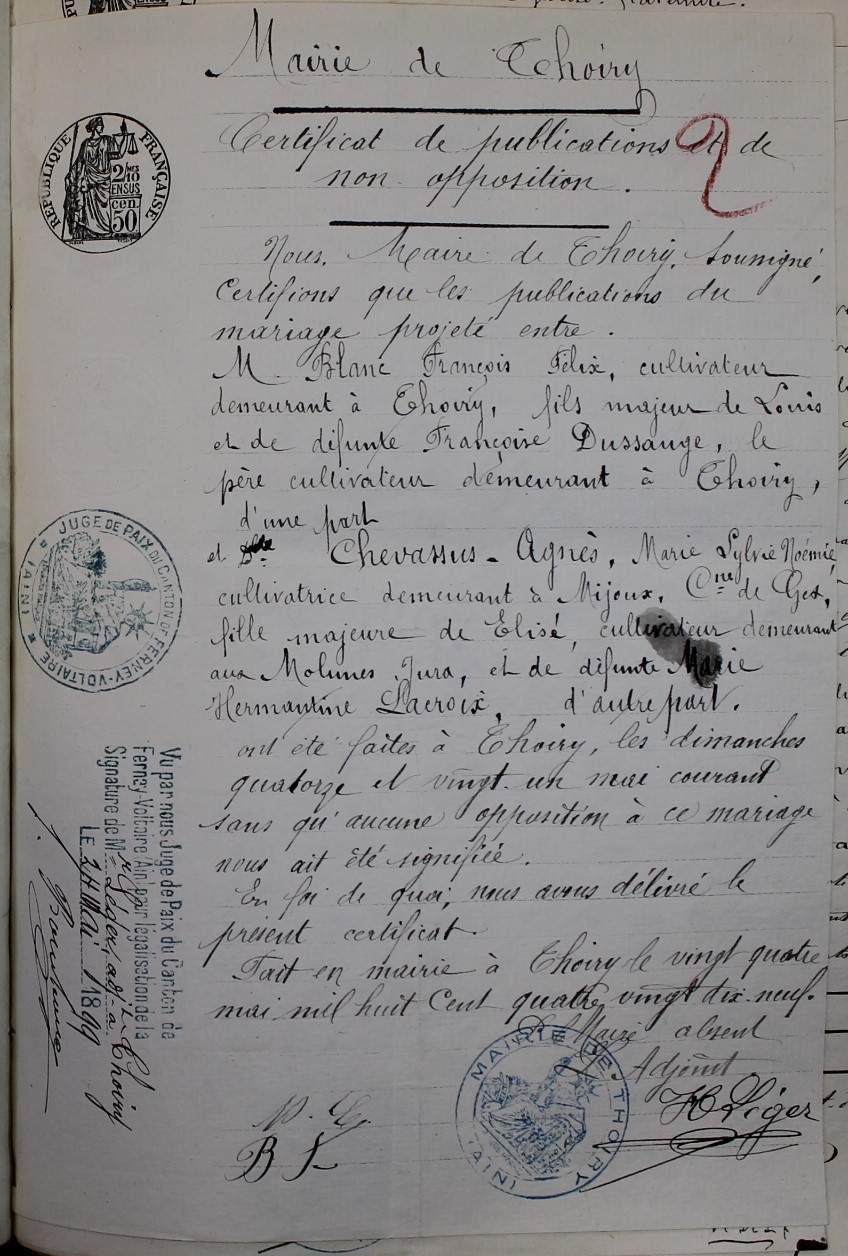 Mairie de Thoiry
Certificat de publications et de
non opposition.
2
RÉPUBLIQUE FRANÇAISE
2/10
EN SUS
cen.
50
Nous, Maire de Thoiry, soussigné,
Certifions que les publications du
mariage projeté entre.
M. Blanc François Félix, cultivateur
demeurant à Thoiry, fils majeur de Louis
et de défunte Françoise Dussauge, le
père cultivateur demeurant à Thoiry,
d'une part
et Dlle Chevassus-Agnès, Marie Sylvie Noémie
cultivatrice demeurant à Mijoux, Cne de Gex,
fille majeure de Elisé, cultivateur demeurant
aux Molunes Jura, et de défunte Marie
Hermantine Lacroix, d'autre part.
ont été faites à Thoiry, les dimanches
quatorze et vingt-un mai courant
sans qu'aucune opposition à ce mariage
nous ait été signifiée.
En foi de quoi, nous avons délivré le
présent certificat.
Fait en mairie à Thoiry le vingt quatre
mai mil huit cent quatre vingt dix-neuf.
Maire absent
Adjoint
H Léger
MAIRIE DE THOIRY
(AIN)
JUGE DE PAIX DU CANTON DE FERNEY-VOLTAIRE
(AIN)
Vu par nous Juge de Paix du Canton de
Ferney-Voltaire (Ain) pour légalisation de la
Signature de Mr Léger, adjt à Thoiry
LE 24 Mai 1899